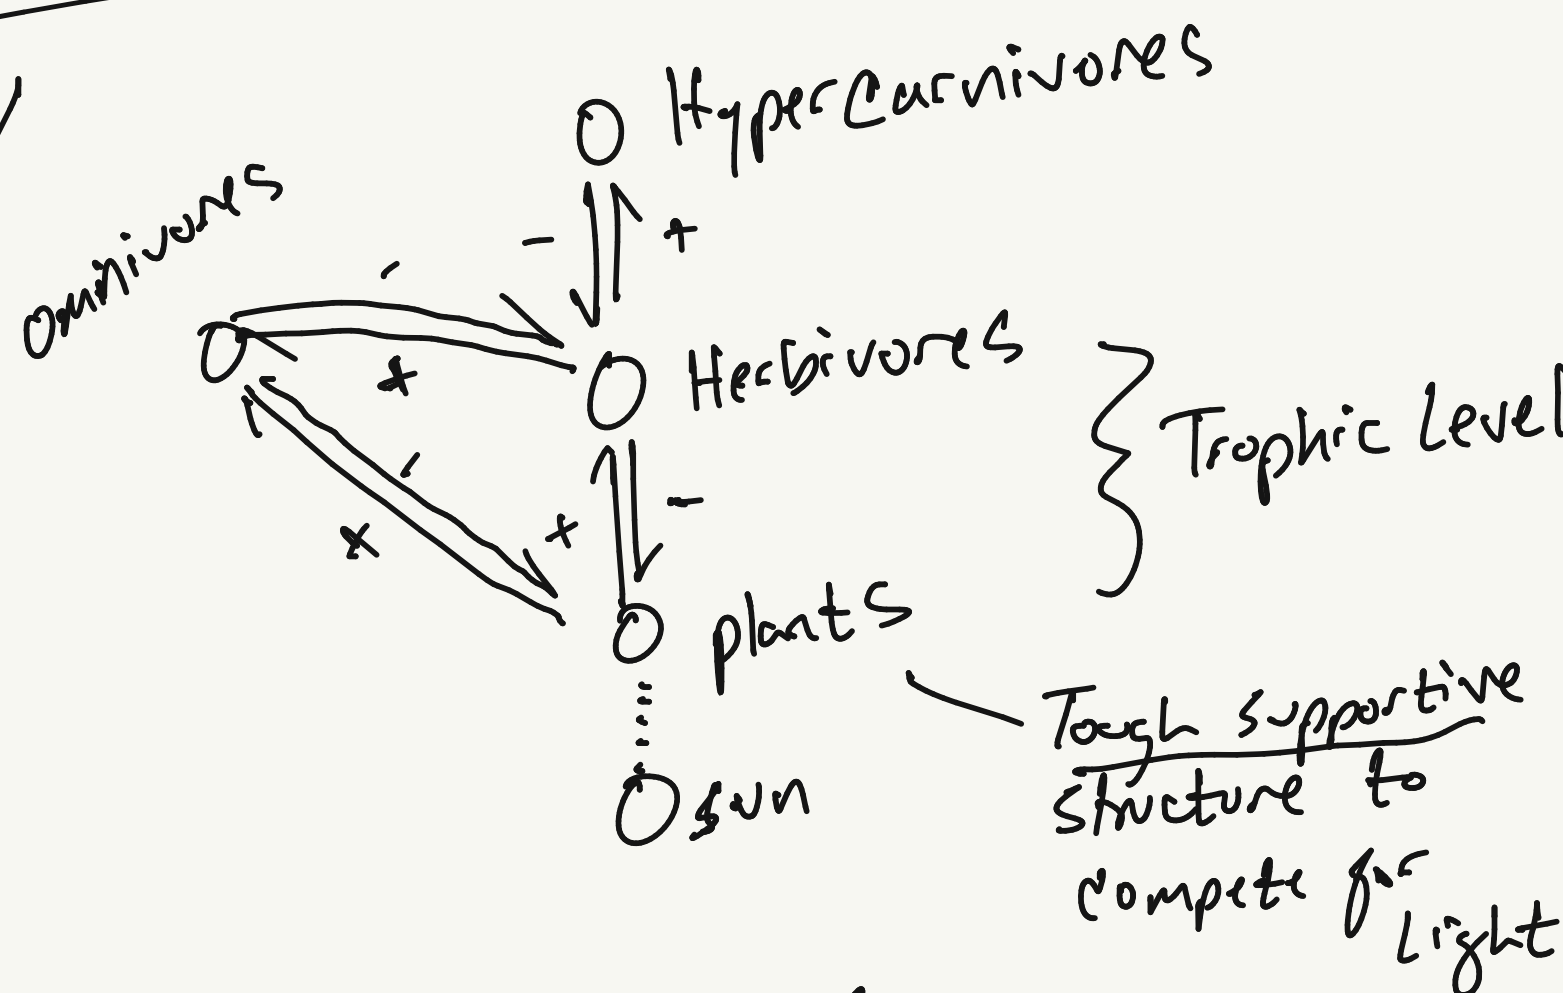 HyperCarnivores
omnivores
-
+
-
+
Herbivores
Trophic Level
-
+
-
+
plants
Tough supportive
structure to
compete for
Light
sun